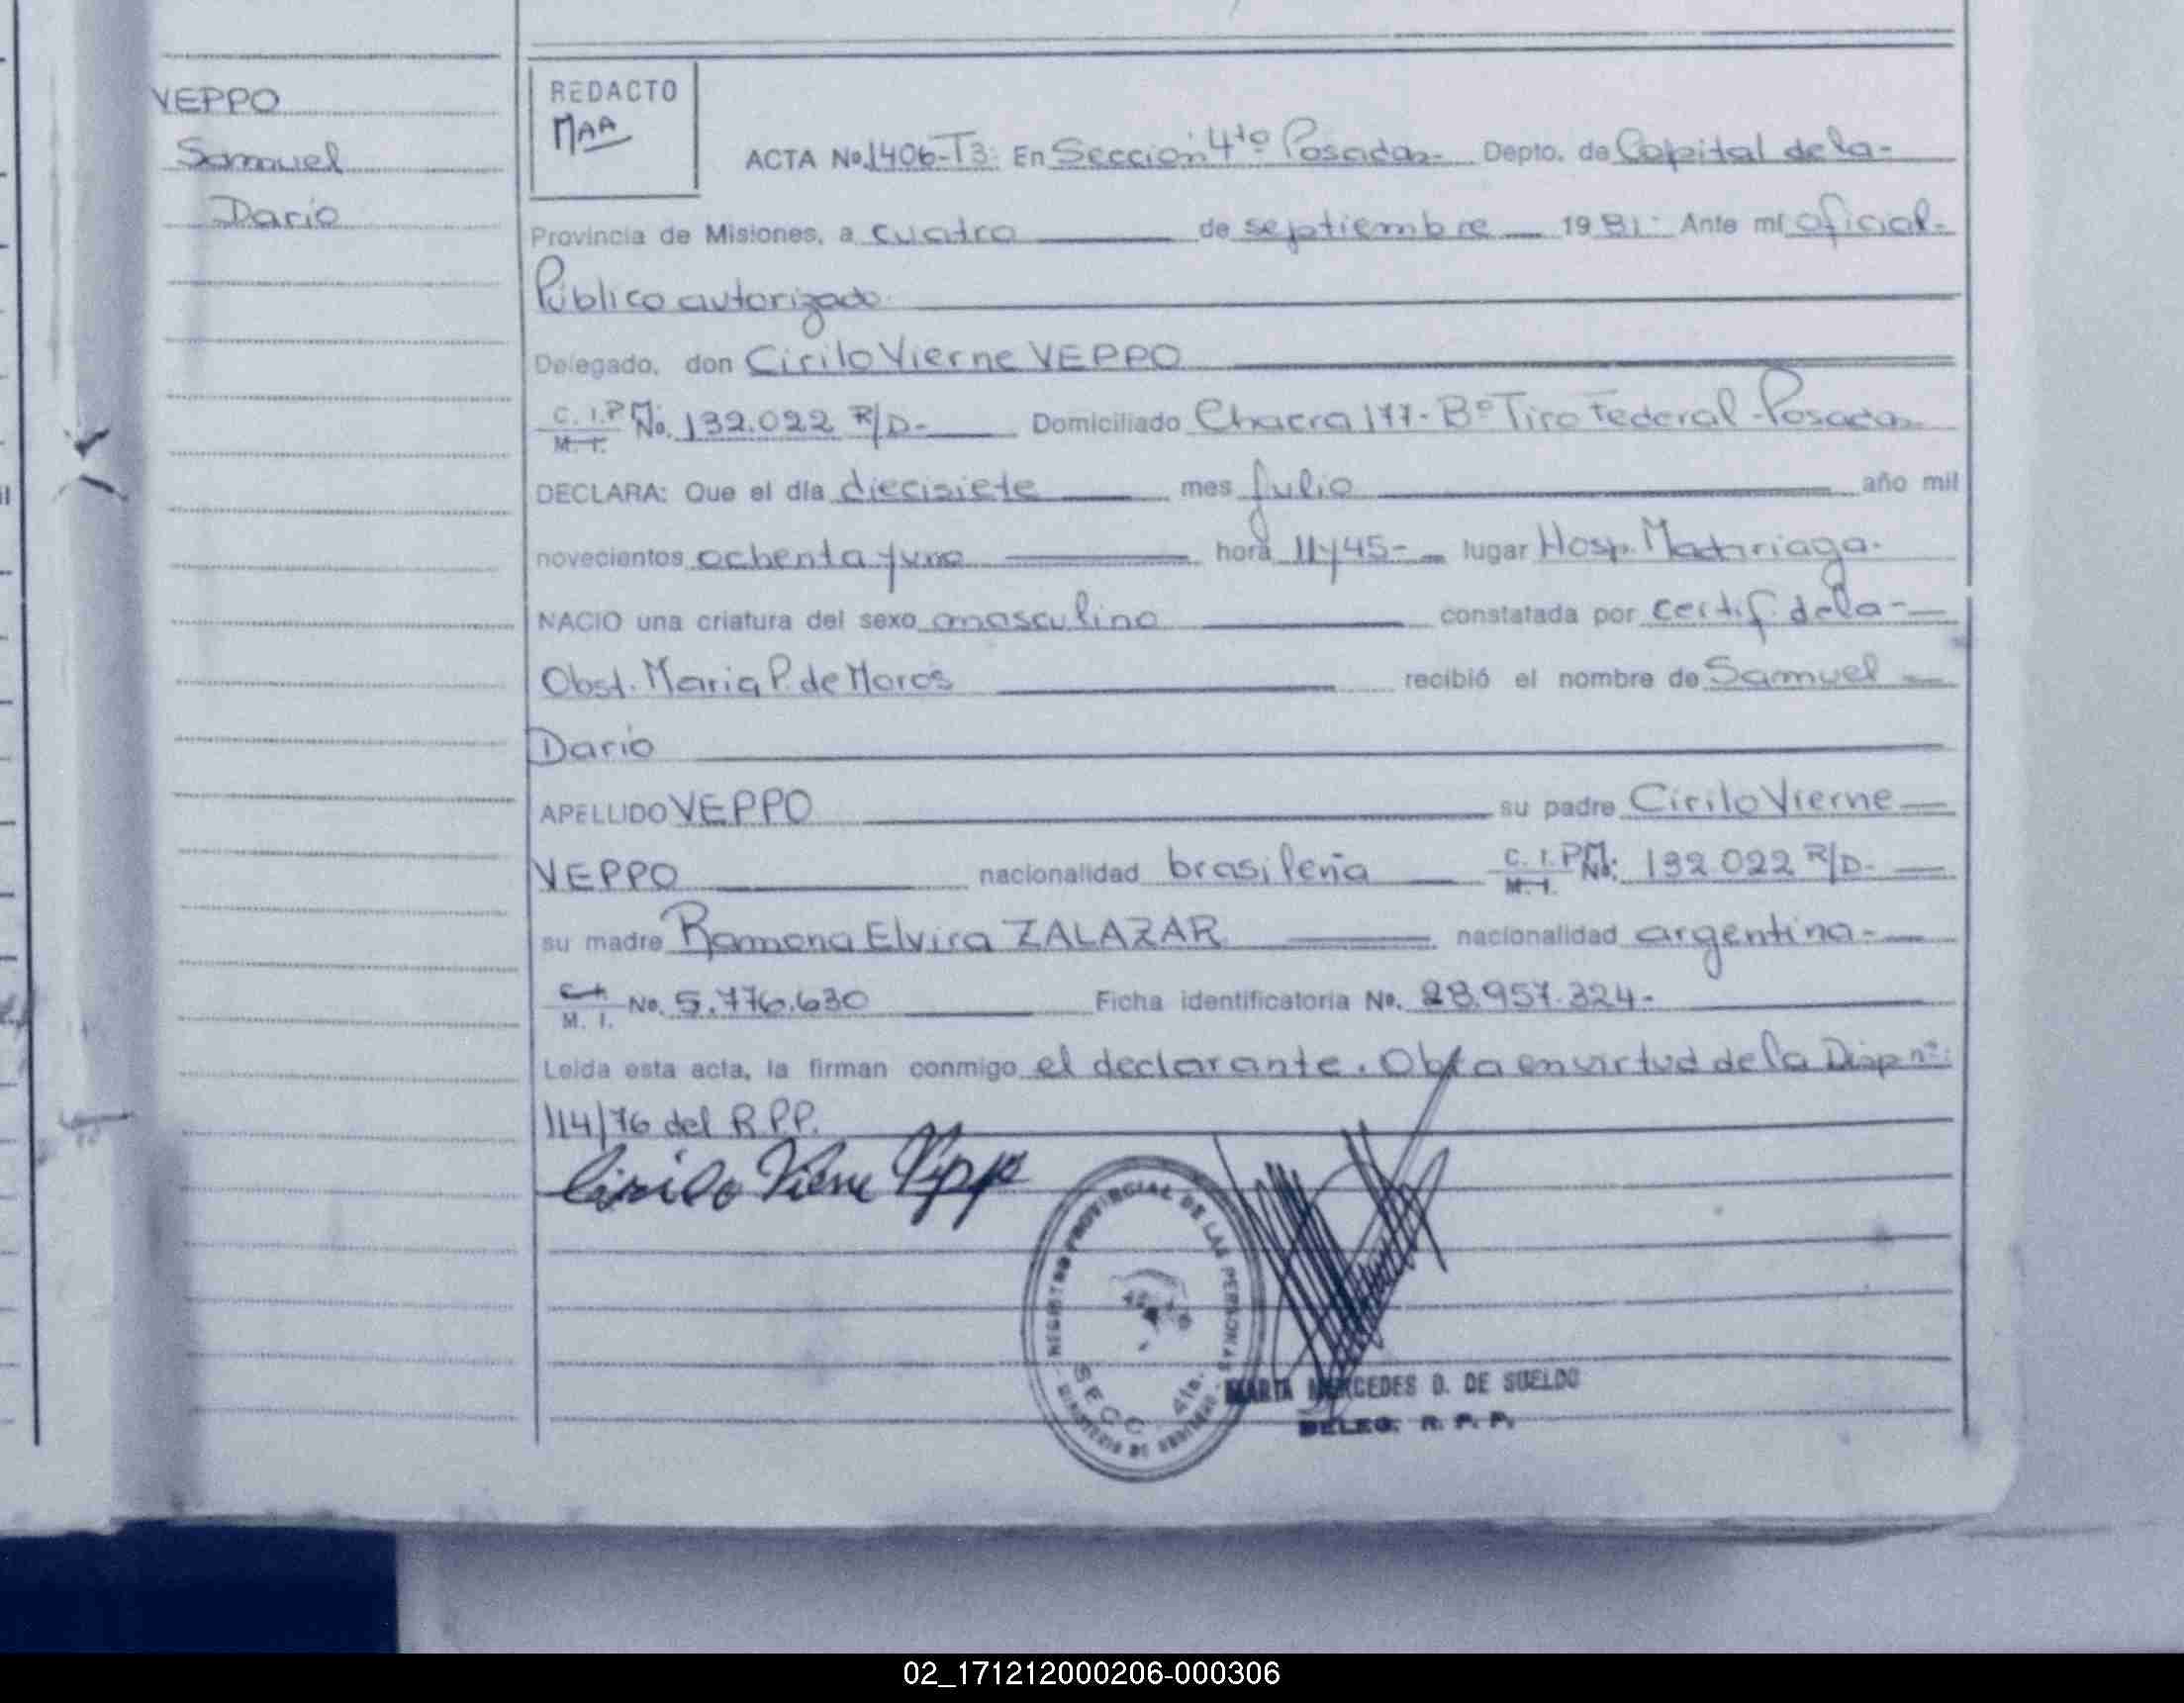 VEPPO
Samuel
Dario
REDACTO
MAA
ACTA No. 1406-T3: En Sección 4to Posadas- Depto. de Capital de la-
Provincia de Misiones, a cuatro de septiembre 1981- Ante mí oficial-
Público autorizado.
Delegado, don Cirilo Vierne VEPPO
C. I. P M. No. 132.022 R/D- Domiciliado Chacra 177- Bº Tiro Federal-Posadas
M. I.
DECLARA: Que el día diecisiete mes Julio año mil
novecientos ochenta y uno hora 11y45- lugar Hosp. Madariaga.
NACIO una criatura del sexo masculino constatada por certif. de la-
Obst. Maria P. de Moros recibió el nombre de Samuel
Dario
APELLIDO VEPPO su padre Cirilo Vierne
VEPPO nacionalidad brasileña C. I. P M. No. 132.022 R/D-
M. I.
su madre Ramona Elvira ZALAZAR nacionalidad argentina-
C. I. No. 5.776.630 Ficha identificatoria No. 28.957.324-
M. I.
Leída esta acta, la firman conmigo el declarante. Obra en virtud de la Disp nº:
114/76 del R.P.P.
Cirilo Vierne Veppo
REGISTRO PROVINCIAL DE LAS PERSONAS
SECC. 4to.
MINISTERIO DE
MARTA MERCEDES D. DE SUELDO
DELEG. R. P. P.
02_171212000206-000306